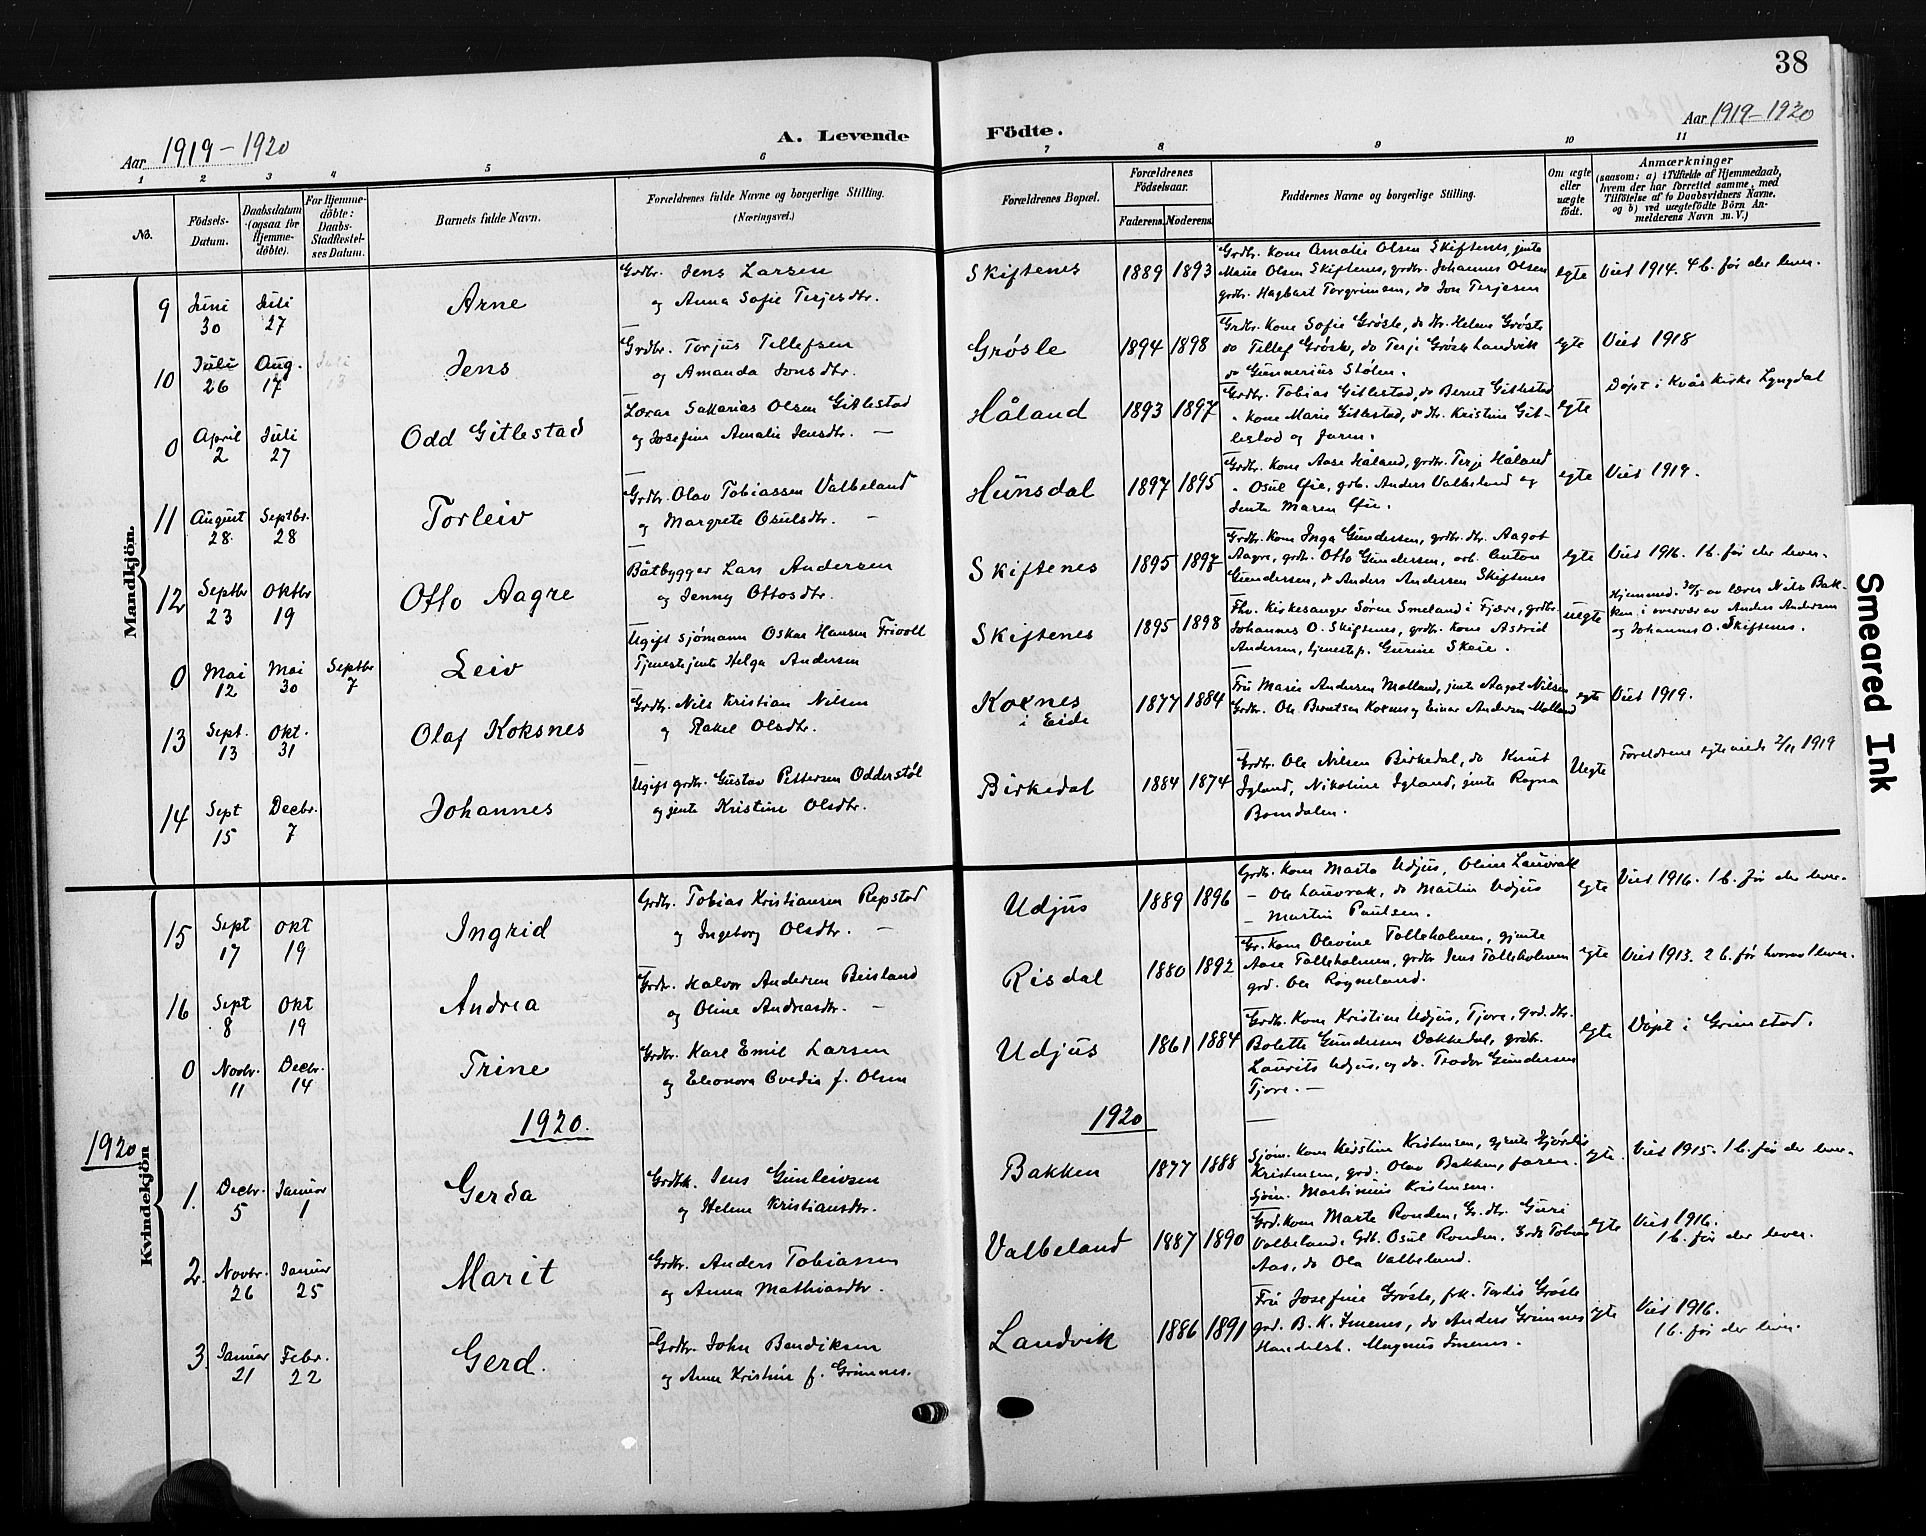 38
Aar 1919-1920
A. Levende Födte.
Aar 1919-1920
1 2 3 4 5 6 7 8 9 10 11
No.
Födsels-Datum.
Daabsdatum (ogsaa for Hjemme-döbte).
For Hjemme-döbte: Daabs-Stadfæstel-ses Datum.
Barnets fulde Navn.
Forældrenes fulde Navne og borgerlige Stilling.
(Næringsvei.)
Forældrenes Bopæl.
Forældrenes Födselsaar.
Faderens. Moderens.
Faddernes Navne og borgerlige Stilling.
Om ægte eller uægte født.
Anmærkninger
(saasom: a) i Tilfælde af Hjemmedaab,
hvem der har forrettet samme, med
Tilföielse af to Daabsvidners Navne,
og b) ved uægtefödte Börn An-
melderens Navn m. V.)
Mandkjön.
9 Juni 30 Juli 27 Arne
Grdbr. Jens Larsen
og Anna Sofie Terjesdtr.
Skiftenes 1889 1893
Grdbr. Kone Amalie Olsen Skiftenes, jente
Marie Olsen Skiftenes, grdbr. Johannes Olsen
grdbr. Hagbart Torgrimsen, do Jon Terjesen
egte Viet 1914. 4 b. før der lever.
10 Juli 26 Aug. 17 Juli 13 Jens
Grdbr. Torjus Tellefsen
og Amanda Jonsdtr.
Grøsle 1894 1898
Grdbr. Kone Sofie Grøsle, do dtr. Helene Grøsle
do Tellef Grøsle, do Terje Grøsle Landvik
do Gunnerius Stølen.
egte Viet 1918
0 April 2 Juli 27 Odd Gitlestad
Lærar Sakarias Olsen Gitlestad
og Josefine Amalie Jensdtr. —
Håland 1893 1897
Grdbr. Tobias Gitlestad, do Bernt Gitlestad
" Kone Marie Gitlestad, do dtr. Kristine Git-
lestad og faren.
egte Døpt i Kvås Kirke Lyngdal
11 August 28 Septbr. 28 Torleiv
Grdbr. Olav Tobiassen Valbeland
og Margrete Osulsdtr. —
Hunsdal 1897 1895
Grdbr. Kone Aase Håland, grdbr. Terje Håland
" Osul Øie, grb. Anders Valbeland og
Jente Maren Øie.
egte Viet 1919.
12 Septbr 23 Oktbr 19 Otto Aagre
Båtbygger Lars Andersen
og Jenny Ottosdtr.
Skiftenes 1895 1897
Grdbr. Kone Inga Gundersen, grdbr. dtr. Aagot
Aagre, grdb. Otto Gundersen, arb. Anton
Gundersen, do Anders Andersen Skiftenes
egte Viet 1916. 1 b. før der lever.
0 Mai 12 Mai 30 Septbr 7 Leiv
Ugift sjømann Oskar Hansen Frivoll
Tjenestejente Helga Andersen
Skiftenes 1895 1898
Fhv. Kirkesanger Søren Smeland i Fjære, grdbr.
Johannes O. Skiftenes, grdbr. Kone Astrid
Andersen, tjenestep. Gurine Skeie.
uegte Hjemmed. 30/5 av lærer Nils Bak-
ken i overvær av Anders Andersen
og Johannes O. Skiftenes.
13 Sept. 13 Okt. 31 Olaf Koksnes
Grdbr. Nils Kristian Nilsen
og Rakel Olsdtr.
Koxnes i Eide 1877 1884
Fru Marie Andersen Molland, jente Aagot Nilsen
Grdbr. Ole Berntsen Koxnes og Einar Andersen Molland
egte Viet 1919.
14 Sept 15 Decbr. 7 Johannes
Ugift grdbr. Gustav Pettersen Odderstøl
og jente Kristine Olsdtr.
Birkedal 1884 1874
Grdbr. Ole Nilsen Birkedal, do Knut
Igland, Nikoline Igland, jente Ragna
Bomdalen.
Uegte Foreldrene egteviede 2/11 1919
15 Sept 17 Okt 19 Ingrid
Grdbr. Tobias Kristiansen Repstad
og Ingeborg Olsdtr. —
Udjus 1889 1896
Grdb. Kone Marta Udjus, Oline Lauvrak
— Ole Lauvrak, do Martin Udjus
— Martin Paulsen.
egte Viet 1916. 1 b. før der lever.
16 Sept 8 Okt 19 Andrea
Grdbr. Halvor Andersen Beisland
og Oline Andreasdtr. —
Risdal 1880 1892
Gr. Kone Olevine Tolleholmen, gjente
Aase Tolleholmen, grdbr Jens Tolleholmen
grd. Ole Rogneland.
egte Viet 1913. 2 b. før hvorav 1 lever.
0 Novbr. 11 Decbr. 14 Trine
Grdbr. Karl Emil Larsen
og Eleonora Ovedia f. Olsen
Udjus 1861 1884
Grdbr. Kone Kristine Udjus, Tjore, grd. dtr.
Bolette Gundersen Dokkedal, grdbr.
Laurits Udjus, og do. Trodor Gundersen
Tjore. —
egte Døpt i Grimstad.
1920. 1920
1920
Kvindekjön
1. Decbr. 5 Januar 1 Gerda
Grdbr. Jens Gunleivsen
og Helene Kristiansdtr.
Bakken 1877 1888
Sjøm. Kone Kerstine Kristensen, gjente Hjørdis
Kristensen, grd. Olav Bakken, faren.
Sjøm. Martinius Kristensen.
egte. Viet 1915. 1 b. før der lever.
2. Novbr. 26 Januar 25 Marit
Grdbr. Anders Tobiassen
og Anna Mathiasdtr.
Valbeland 1887 1890
Grd. Kone Marte Ronden, Gr. dtr. Guri
Valbeland. Gdb. Osul Ronden. Grdb Tobias
Aas, do Ola Valbeland.
egte Viet 1916.
1 b. før der lever.
3 Januar 21 Febr. 22 Gerd.
Grdbr. John Bendiksen
og Anne Kristine f. Grimnes.
Landvik 1886 1891
Fru Josefine Grøsle, frk. Tordis Grøsle
grd. B. K. Imenes, do Anders Grimnes
Handelsb. Magnus Imenes.
egte Viet 1916.
1 b. før der lever.
Smeared Ink